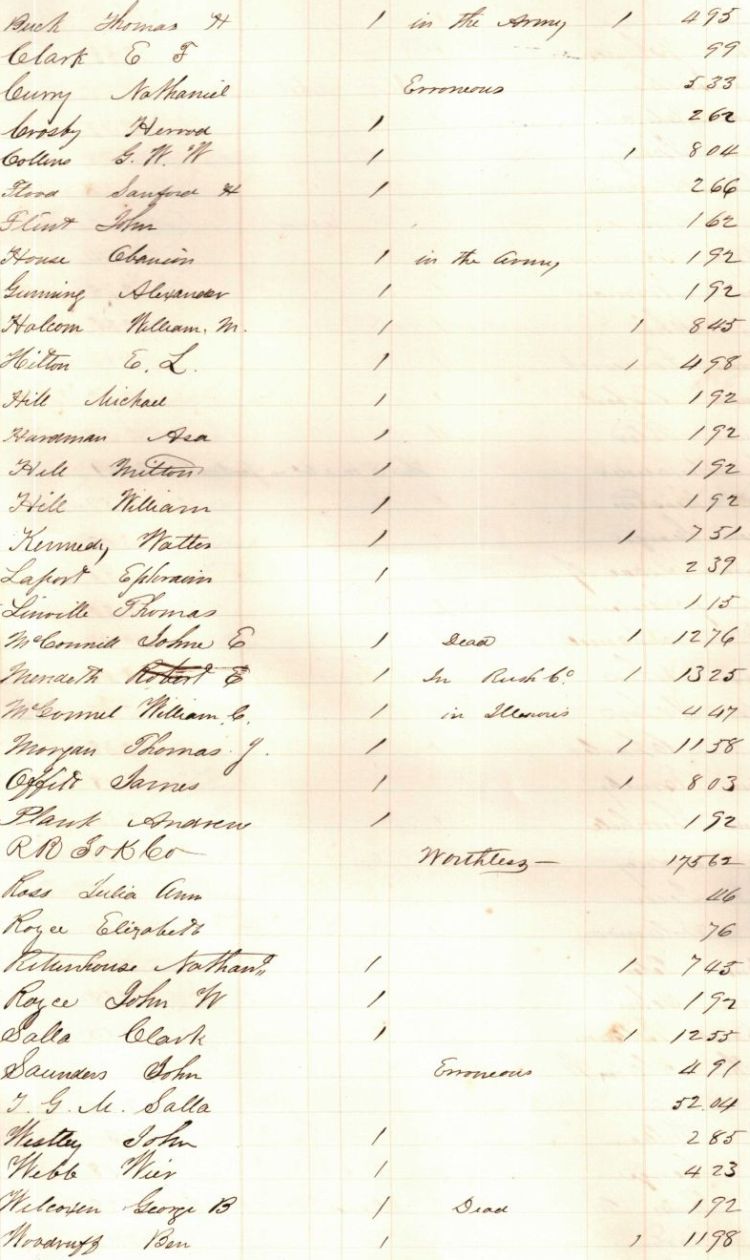 Buck Thomas H 1 in the Army 1 495
Clark E F 99
Curry Nathaniel Erroneous 533
Crosby Herrod 1 262
Collins G. W. W 1 1 804
Flood Sanford H 1 266
Flint John 162
House 1 in the Army 192
Gunning Alexander 1 192
Holcom William. M. 1 1 845
Hilton E. L. 1 1 498
Hill Michael 1 192
Hardman Asa 1 192
Hill Milton 1 192
Hill William 1 192
Kennedy Walter 1 1 751
Laport Ephraim 1 239
Linville Thomas 115
McConnill John E 1 Dead 1 1276
Merideth Robert E 1 In Rush Co 1 1325
McConnel William, C. 1 in Illinois 447
Morgan Thomas J. 1 1 1158
Offitt James 1 1 803
Plank Andrew 1 192
R R Co Worthless — 17562
Ross Julia Ann 46
Royce Elizabeth 76
Ritenhouse Nathanl 1 1 745
Royce John W 1 192
Salla Clark 1 1 1255
Saunders John Erroneous 491
T. G. M. Salla 52.04
Westley John 1 285
Webb Wier 1 423
Wilcoxen George B 1 Dead 192
Woodruff Ben 1 1 1198